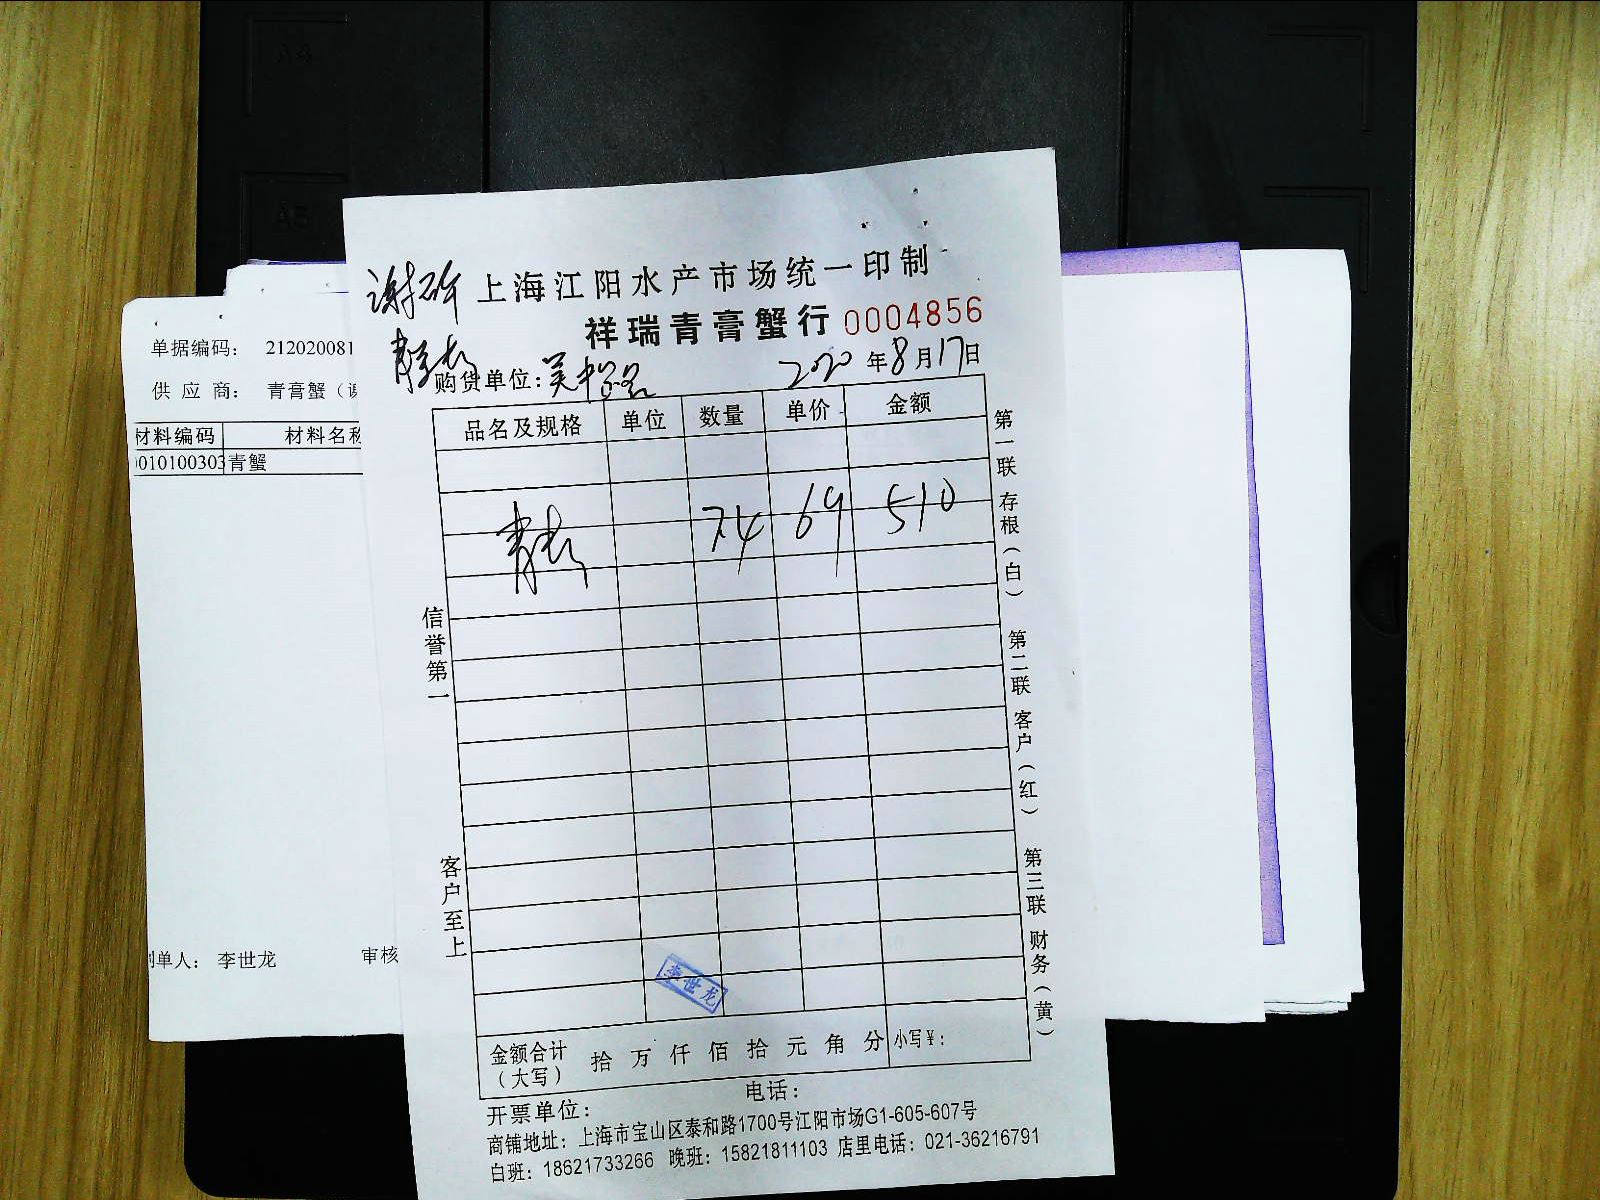 A4
A5
上海江阳水产市场统一印制
祥瑞青膏蟹行 0004856
购货单位：
2020 年 8 月 17 日
品名及规格 单位 数量 单价 金额
7.4 69 510
信誉第一
客户至上
第一联 存根（白）
第二联 客户（红）
第三联 财务（黄）
李世龙
金额合计（大写） 拾 万 仟 佰 拾 元 角 分 小写￥：
开票单位： 电话：
商铺地址：上海市宝山区泰和路1700号江阳市场G1-605-607号
白班：18621733266 晚班：15821811103 店里电话：021-36216791
单据编码： 212020081
供 应 商： 青膏蟹（
材料编码 材料名称
010100303 青蟹
制单人： 李世龙 审核